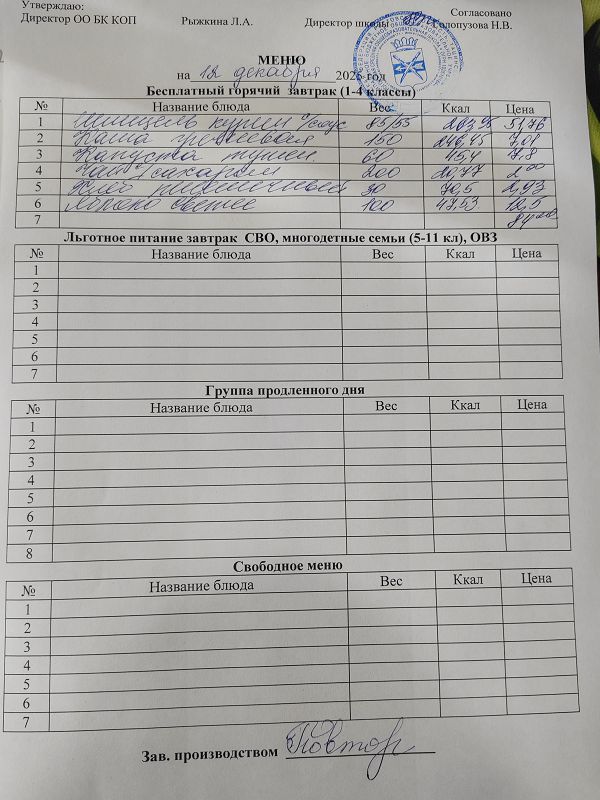 Утверждаю:
Согласовано
Директор ОО БК КОП Рыжкина Л.А. Директор школы Солопузова Н.В.
МЕНЮ
на 12 декабря 2025 год
Бесплатный горячий завтрак (1-4 классы)
№ Название блюда Вес Ккал Цена
1 Шницель курин с/соус 85/55 51,76
2 Каша гречневая 150 7,01
3 Капуста тушен 60 45,4 7,8
4 Чай с/сахаром 200 2,00
5 Хлеб пшеничный 30 70,5 2,93
6 Яблоко свежее 100 47,53 12,5
7 84,00
Льготное питание завтрак СВО, многодетные семьи (5-11 кл), ОВЗ
№ Название блюда Вес Ккал Цена
1
2
3
4
5
6
7
Группа продленного дня
№ Название блюда Вес Ккал Цена
1
2
3
4
5
6
7
8
Свободное меню
№ Название блюда Вес Ккал Цена
1
2
3
4
5
6
7
Зав. производством